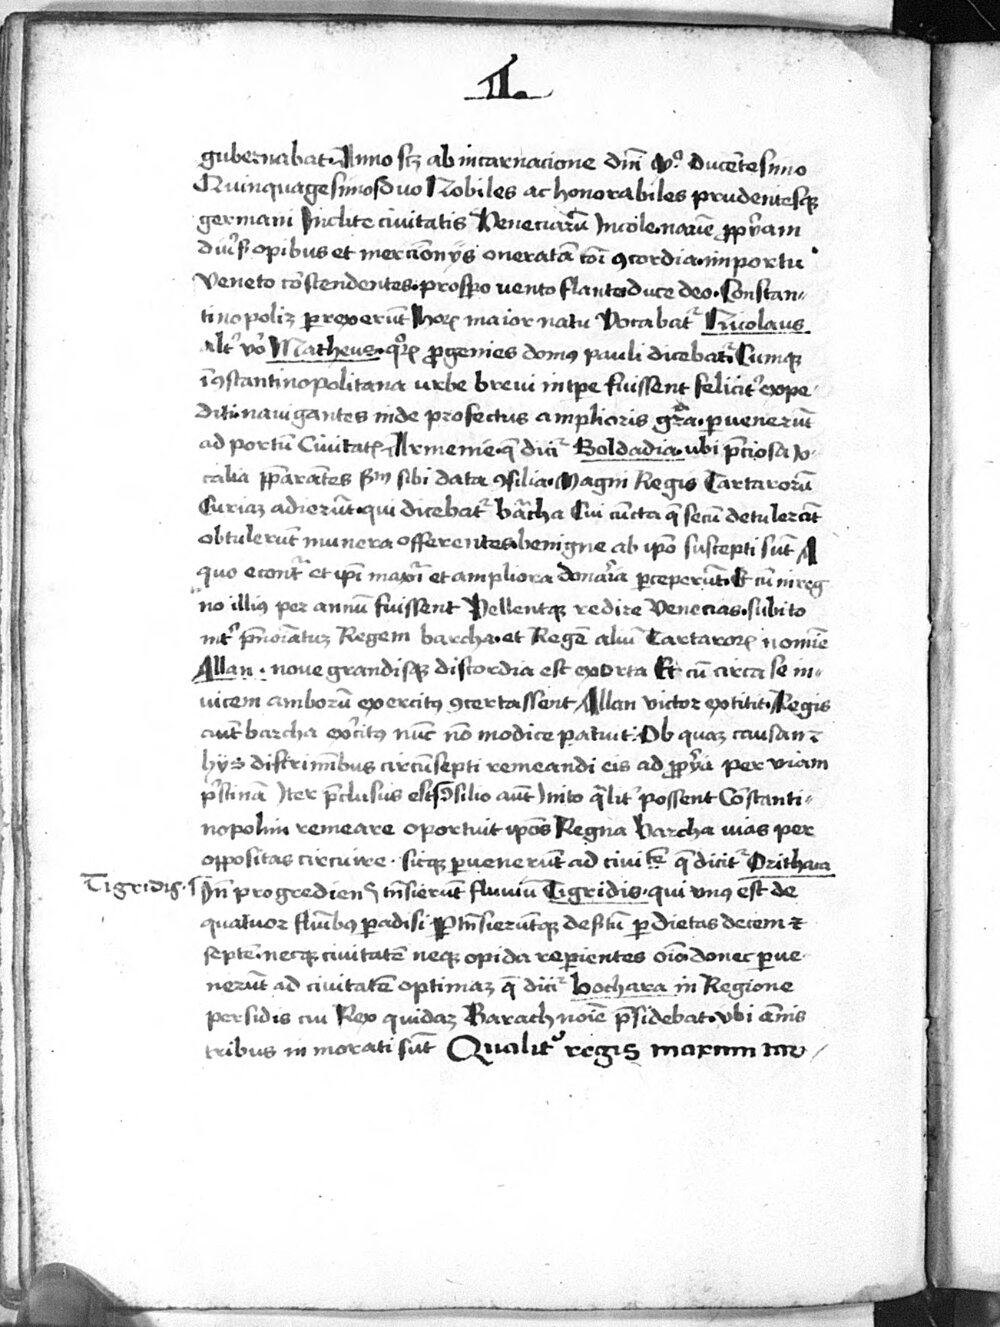 II.
gubernabat. Anno scz ab incarnacione dni Mº ducētesimo
Quinquagesimosᵈuo Nobiles ac honorabiles prudentesqꝫ
germani Inclite ciuitatis Veneciarū Incole nauē ꝓpʳam
diuʳſ opibus et mercioniis oneratā cōi ꝯcordia in portu
veneto cōstendentes. prospo vento flante duce deo. Constan-
tinopoliz perrexerūt Hoꝝ maior natu Vocabatʳ Nicolaus
altʳ vº Matheus. qᵒꝝ ꝓgenies domꝯ pauli dicebatʳ. Cumqꝫ
ī ꝯstantinopolitana urbe breui intpe fuissent felicitʳ expe-
diti. nauigantes inde profectus amplioris grā. puenerūt
ad portū Ciuitatꝭ Armenie q̄ dicīʳ Boldadia. ubi p̄ciosa io-
calia p̄parātes sᵐ sibi data ꝯsilia. Magni Regis Tartarorū
Curiaz adierūt. qui dicebatʳ bārcha Cui cūcta q̄ secū detulerāt
obtulerūt munera offerentes. benigne ab ipo suscepti sūt A
quo econtʳ et ipi maxīa et ampliora donaria perceperūt. Et cū in reg-
no illiꝯ per annū fuissent Vellentqꝫ redire Venecias. subito
intʳ p̄noīatuz Regem barcha. et Regē aliū Tartaroꝝ nomīe
Allan. noue grandisqꝫ discordia est exorta Et cū circa se in-
uicem amborū exercitꝯ ꝯcertassent Allan victor extitit. Regis
aūt barcha exʳcitꝯ nūc nō modice patuit. Ob quaz causam ꝛ
hys discrimībus circūsepti remeandi eis ad ꝓpʳia per viam
pʳstinā Iter p̄clusus est Ꝯsilio aūt Inito q̄litʳ possent Cōstanti-
nopolim remeare oportuit ipos Regna barcha uias per
oppositas circuire. sicqꝫ peruenerūt ad ciuitē q̄ dicitʳ Orithaca
Tigridis. In̄ progredienꝭ tn̄sierūt fluuiū Tigridis. qui vnꝯ est de
quatuor flumībꝯ padisi Ptn̄sierūtqꝫ desʳtū p dietas decem ꝛ
septē. necqꝫ ciuitatē neqꝫ opida reperientes oīo. donec perue-
nerūt ad ciuitatē optimaz q̄ dicīʳ bochara in Regione
persidis cui Rex quidaz Barach noīe p̄sidebat. vbi ānis
tribus in morati sūt Qualitʳ regis maximi